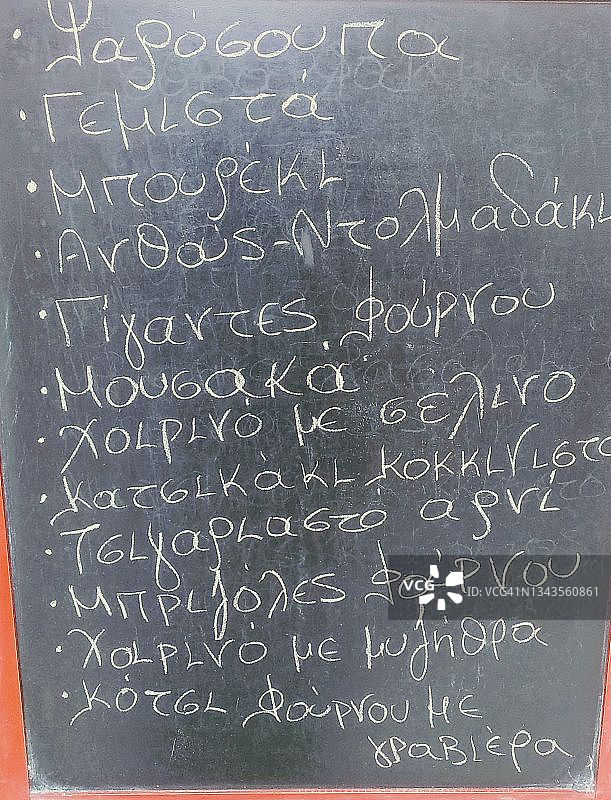 · Ψαρόσουπα
· Γεμιστά
· Μπουρέκι
· Ανθούς-Ντολμαδάκι
· Γίγαντες φούρνου
· Μουσακά
· Χοιρινό με σέλινο
· Κατσικάκι κοκκινιστο
· Τσιγαριαστό αρνί
· Μπριζόλες φούρνου
· Χοιρινό με μυζήθρα
· Κότσι φούρνου με
γραβιέρα
VCG
VCG ID: VCG41N1343560861